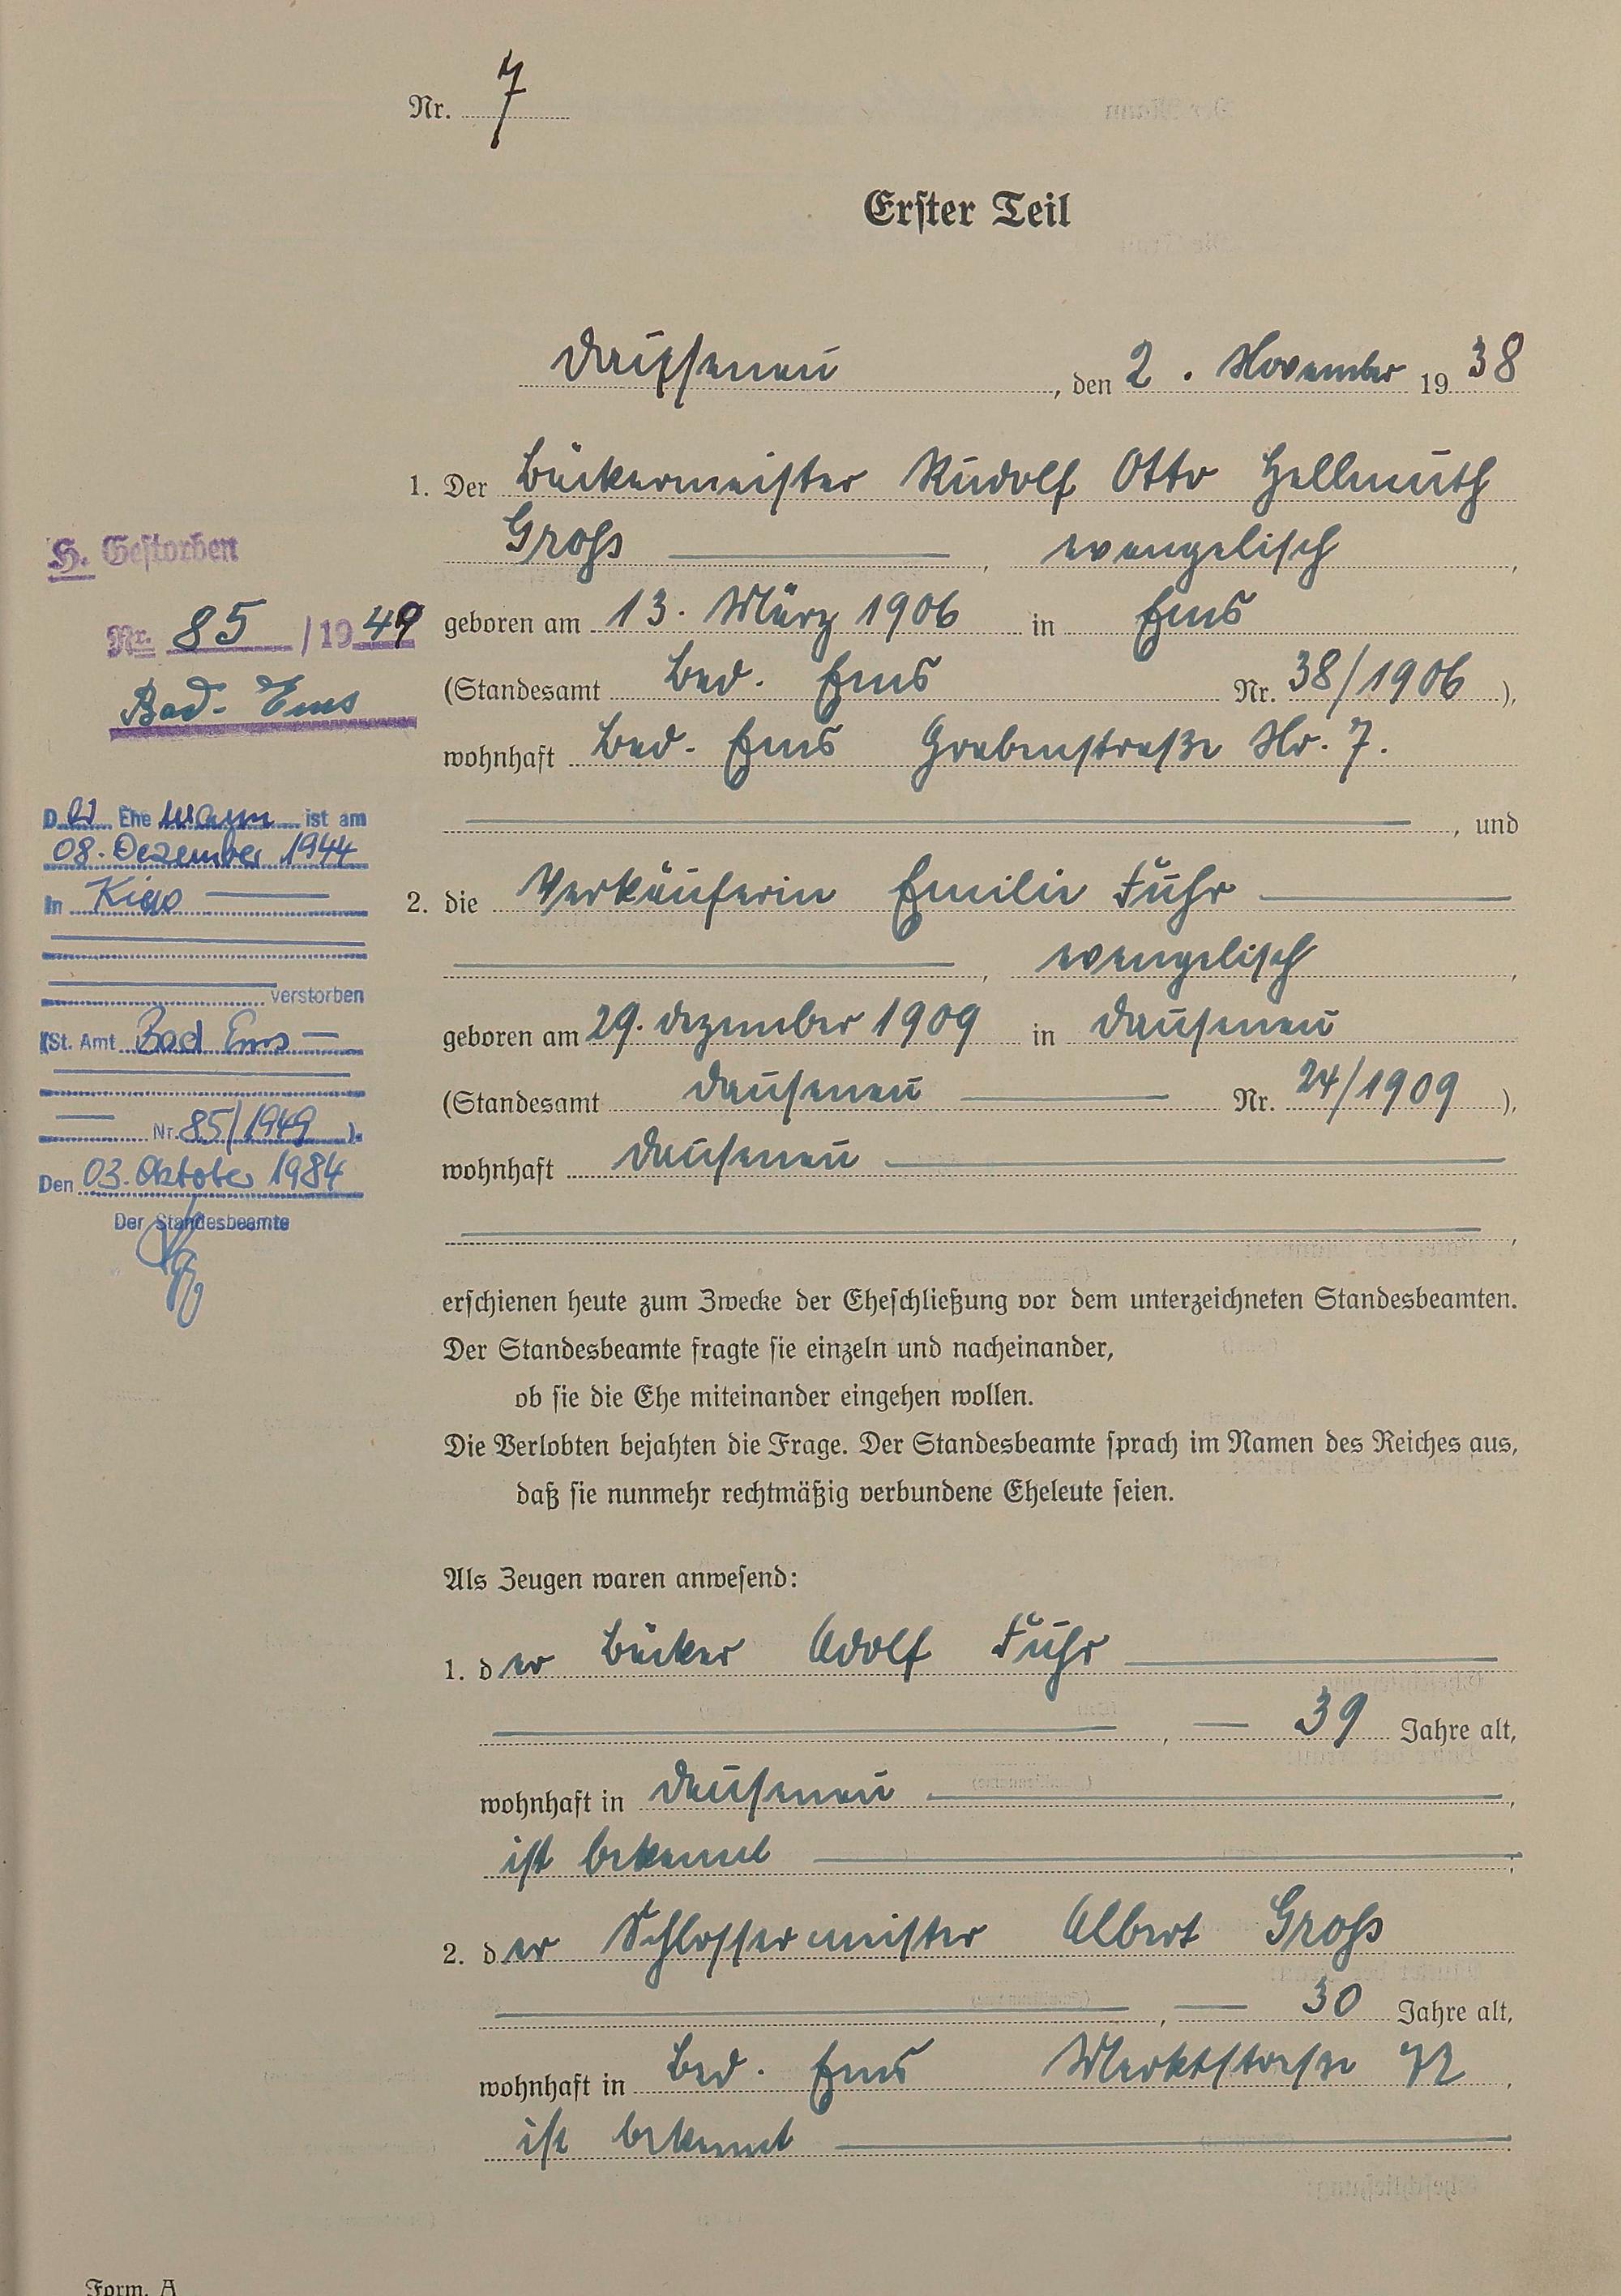 Nr. 7
Erster Teil
Dausenau, den 2. November 1938
1. Der Bäckermeister Rudolf Otto Hellmuth
Groß, evangelisch,
geboren am 13. März 1906 in Ems
(Standesamt Bad. Ems Nr. 38/1906),
wohnhaft Bad. Ems Grabenstraße Nr. 7.
, und
2. die Verkäuferin Emilie Fuhr
, evangelisch,
geboren am 29. Dezember 1909 in Dausenau
(Standesamt Dausenau Nr. 24/1909),
wohnhaft Dausenau
,
erschienen heute zum Zwecke der Eheschließung vor dem unterzeichneten Standesbeamten.
Der Standesbeamte fragte sie einzeln und nacheinander,
ob sie die Ehe miteinander eingehen wollen.
Die Verlobten bejahten die Frage. Der Standesbeamte sprach im Namen des Reiches aus,
daß sie nunmehr rechtmäßig verbundene Eheleute seien.
Als Zeugen waren anwesend:
1. der Bäcker Adolf Fuhr
, 39 Jahre alt,
wohnhaft in Dausenau,
ist bekannt;
2. der Schlossermeister Albert Groß
, 30 Jahre alt,
wohnhaft in Bad. Ems Marktstraße 72,
ist bekannt.
H. Gestorben
Nr. 85/1949
Bad-Ems
Der Ehemann ist am
08. Dezember 1944
in
verstorben
(St. Amt Bad Ems
Nr. 85/1949).
Den 03. Oktober 1984
Der Standesbeamte
Form. A